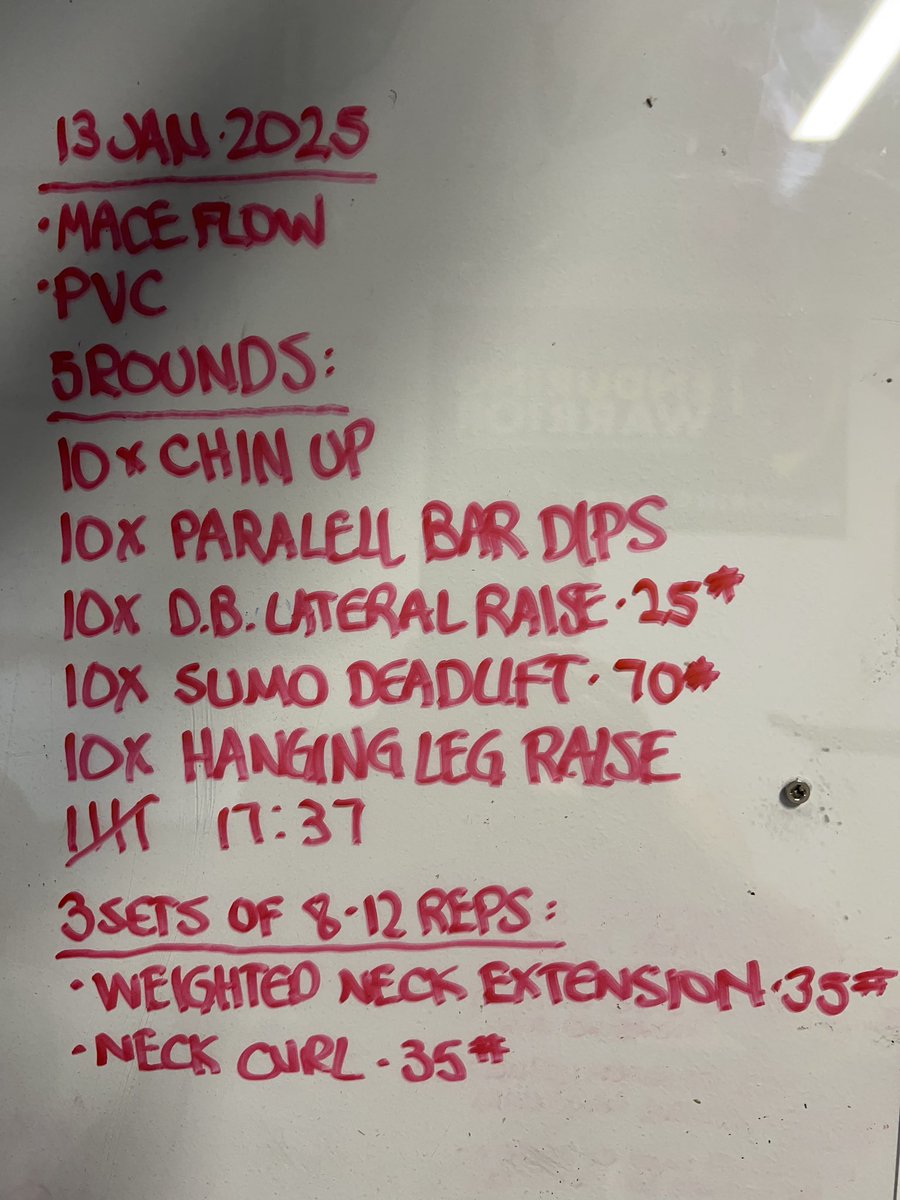 13 JAN. 2025
·MACE FLOW
·PVC
5 ROUNDS:
10x CHIN UP
10X PARALELL BAR DIPS
10X D.B. LATERAL RAISE · 25#
10X SUMO DEADLIFT · 70#
10X HANGING LEG RAISE
17:37
3 SETS OF 8-12 REPS:
·WEIGHTED NECK EXTENSION · 35#
·NECK CURL · 35#
WARRIOR